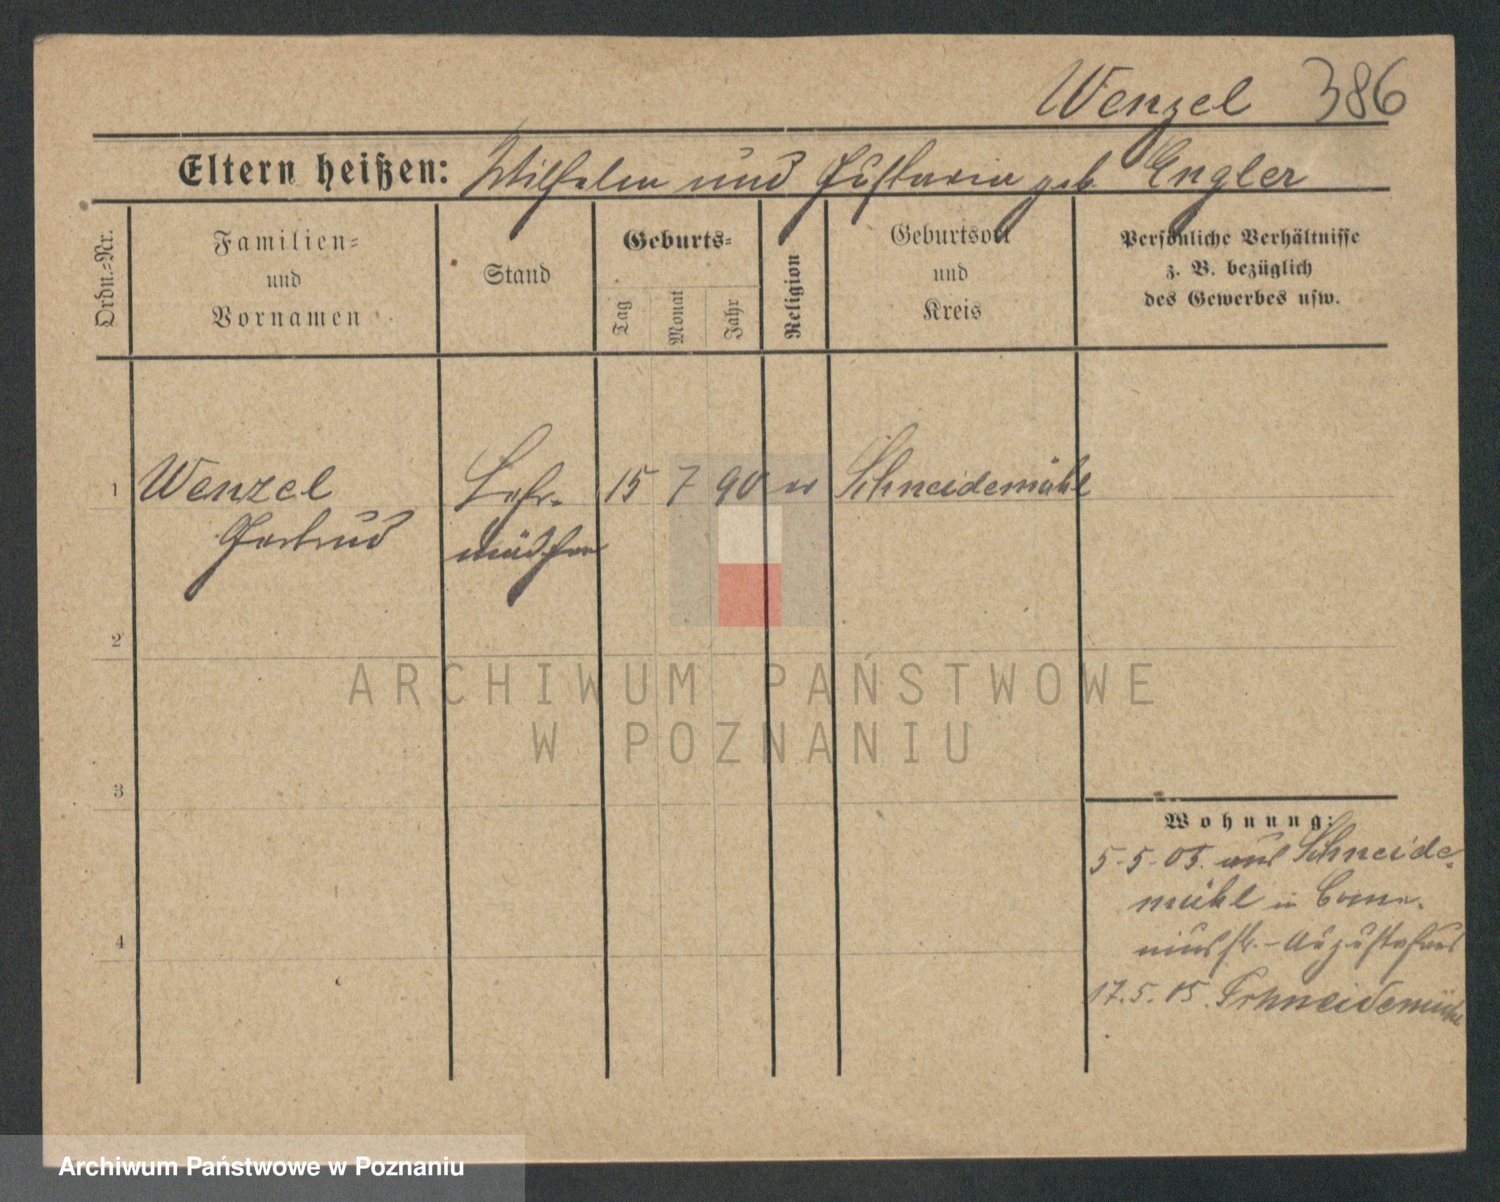 Wenzel 386
Eltern heißen: Wilhelm und geb. Engler
Ordn.=Nr.
Familien=
und
Vornamen
Stand
Geburts=
Tag
Monat
Jahr
Religion
Geburtsort
und
Kreis
Persönliche Verhältnisse
z. B. bezüglich
des Gewerbes usw.
1 Wenzel Lehr- 15 7 90 Schneidemühl
Gertrud mädchen
2
3
4
Wohnung:
5.5.05. aus Schneide-
mühl in
Augustahaus
17.5.05. Schneidemühl
ARCHIWUM PAŃSTWOWE
W POZNANIU
Archiwum Państwowe w Poznaniu